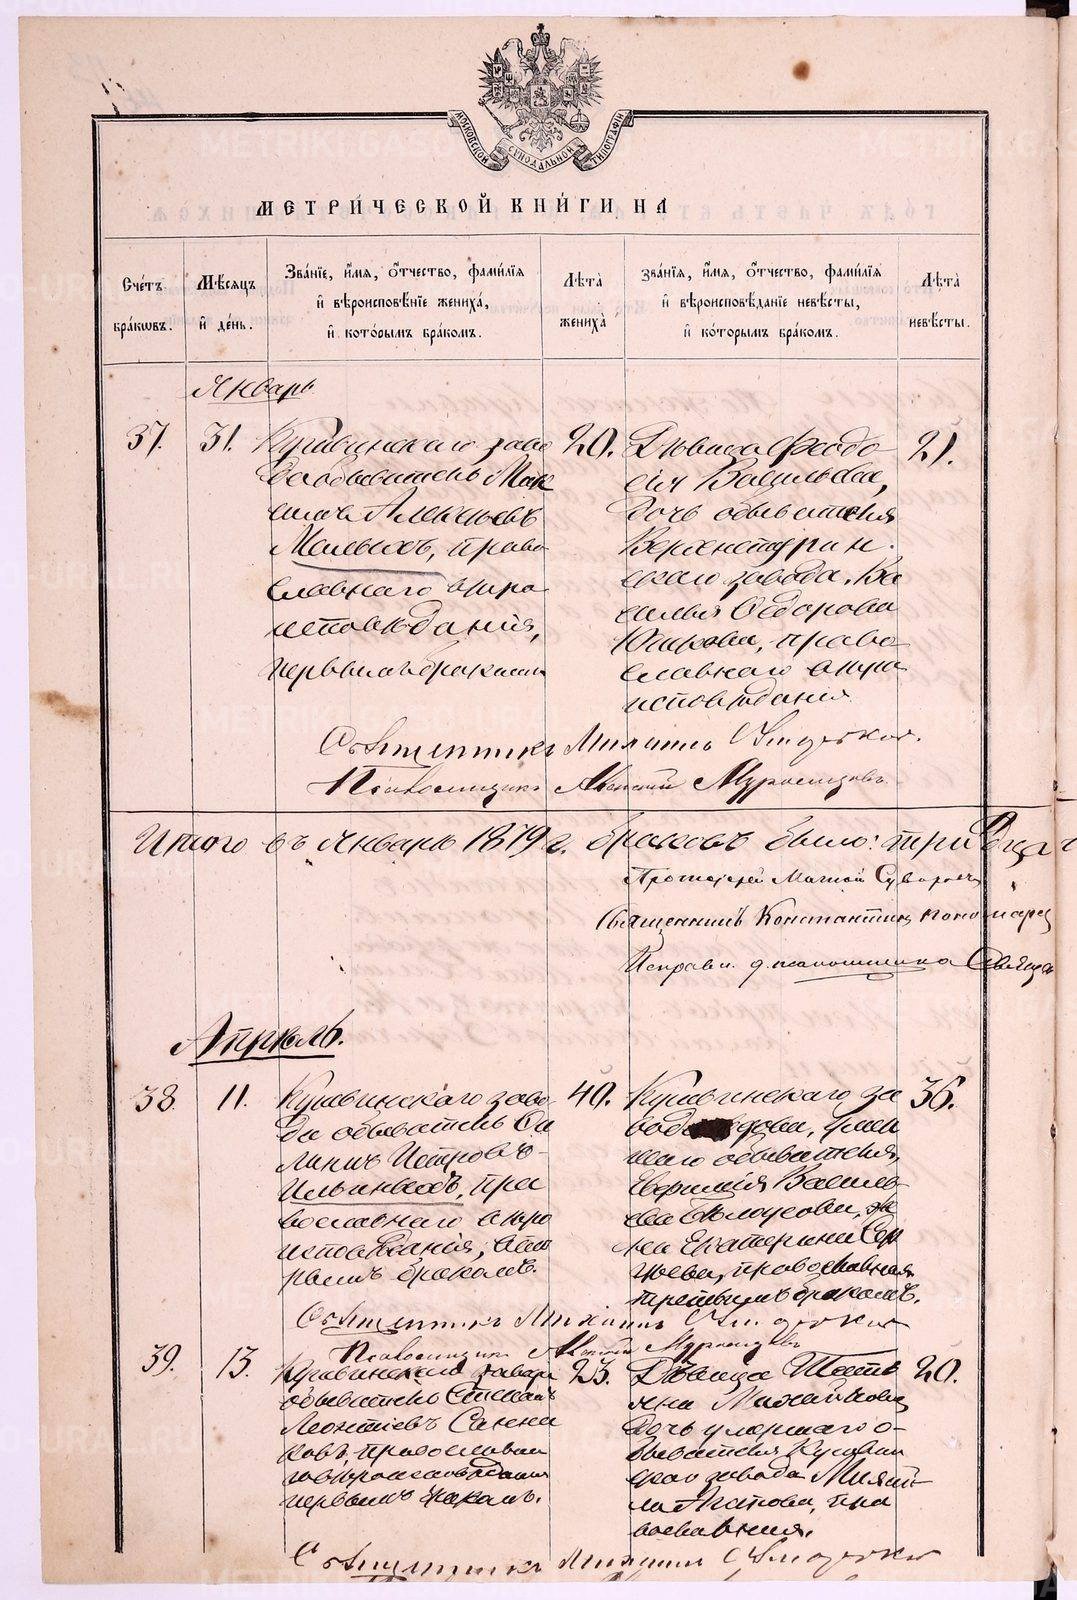 МОСКОВСКОЙ СѴНОДАЛЬНОЙ ТИПОГРАФІИ
МЕТРИ́ЧЕСКОЙ КНИ́ГИ НА
Сче́тъ бра́кωвъ.
Мѣ́сяцъ и҆ де́нь.
Зва́нїе, и҆́мѧ, ѻ҆́тчество, фами́лїѧ
и҆ вѣроисповѣ́нїе жениха̀,
и҆ кото́рымъ бра́комъ.
Лѣта̀ жениха̀
зва́нїѧ, и҆́мѧ, ѻ҆́тчество, фами́лїѧ
и҆ вѣроисповѣ́данїе невѣ́сты,
и҆ ко́торымъ бра́комъ.
Лѣта̀ невѣ́сты.
Январь
37.
31.
Кушвинскаго заво
да обыватель Мак
симъ Алексѣевъ
Малыхъ, право
славнаго вѣро
исповѣданія,
первымъ бракомъ
20.
Дѣвица Феодо
сія Васильева,
дочь обывателя
Верхнетурин
скаго завода, Ва
силья Ѳедорова
право
славнаго вѣро
исповѣданія
21.
Свѣщенникъ Михаилъ
Псаломщикъ
Итого въ Январѣ 1879 г. браковъ было: тридца
Протоіерей Суворовъ
Священникъ Константинъ Пономарев
Исправл. д. псаломщика
Апрѣль.
38
11.
Кушвинскаго заво
да обыватель
Петровъ
Ильиныхъ, пра
вославнаго вѣро
исповѣданія, вто
рымъ бракомъ.
40.
Кушвинскаго за
вода вдова, умер
шаго обывателя,
Василь
ева Бѣлоусова, же
на Екатерина Сер
гѣева, православная
третьимъ бракомъ.
36.
Свѣщенникъ Михаилъ
Псаломщикъ
39.
13.
Кушвинскаго завода
обыватель Степанъ
Леонтіевъ Санни
ковъ, православна
го вѣроисповѣданія
первымъ бракомъ.
23.
Дѣвица Татья
на Михайлова
дочь умершаго о-
бывателя Кушвин
скаго завода Михаи-
ла Агапова, пра
вославная.
20.
Свѣщенникъ Михаилъ